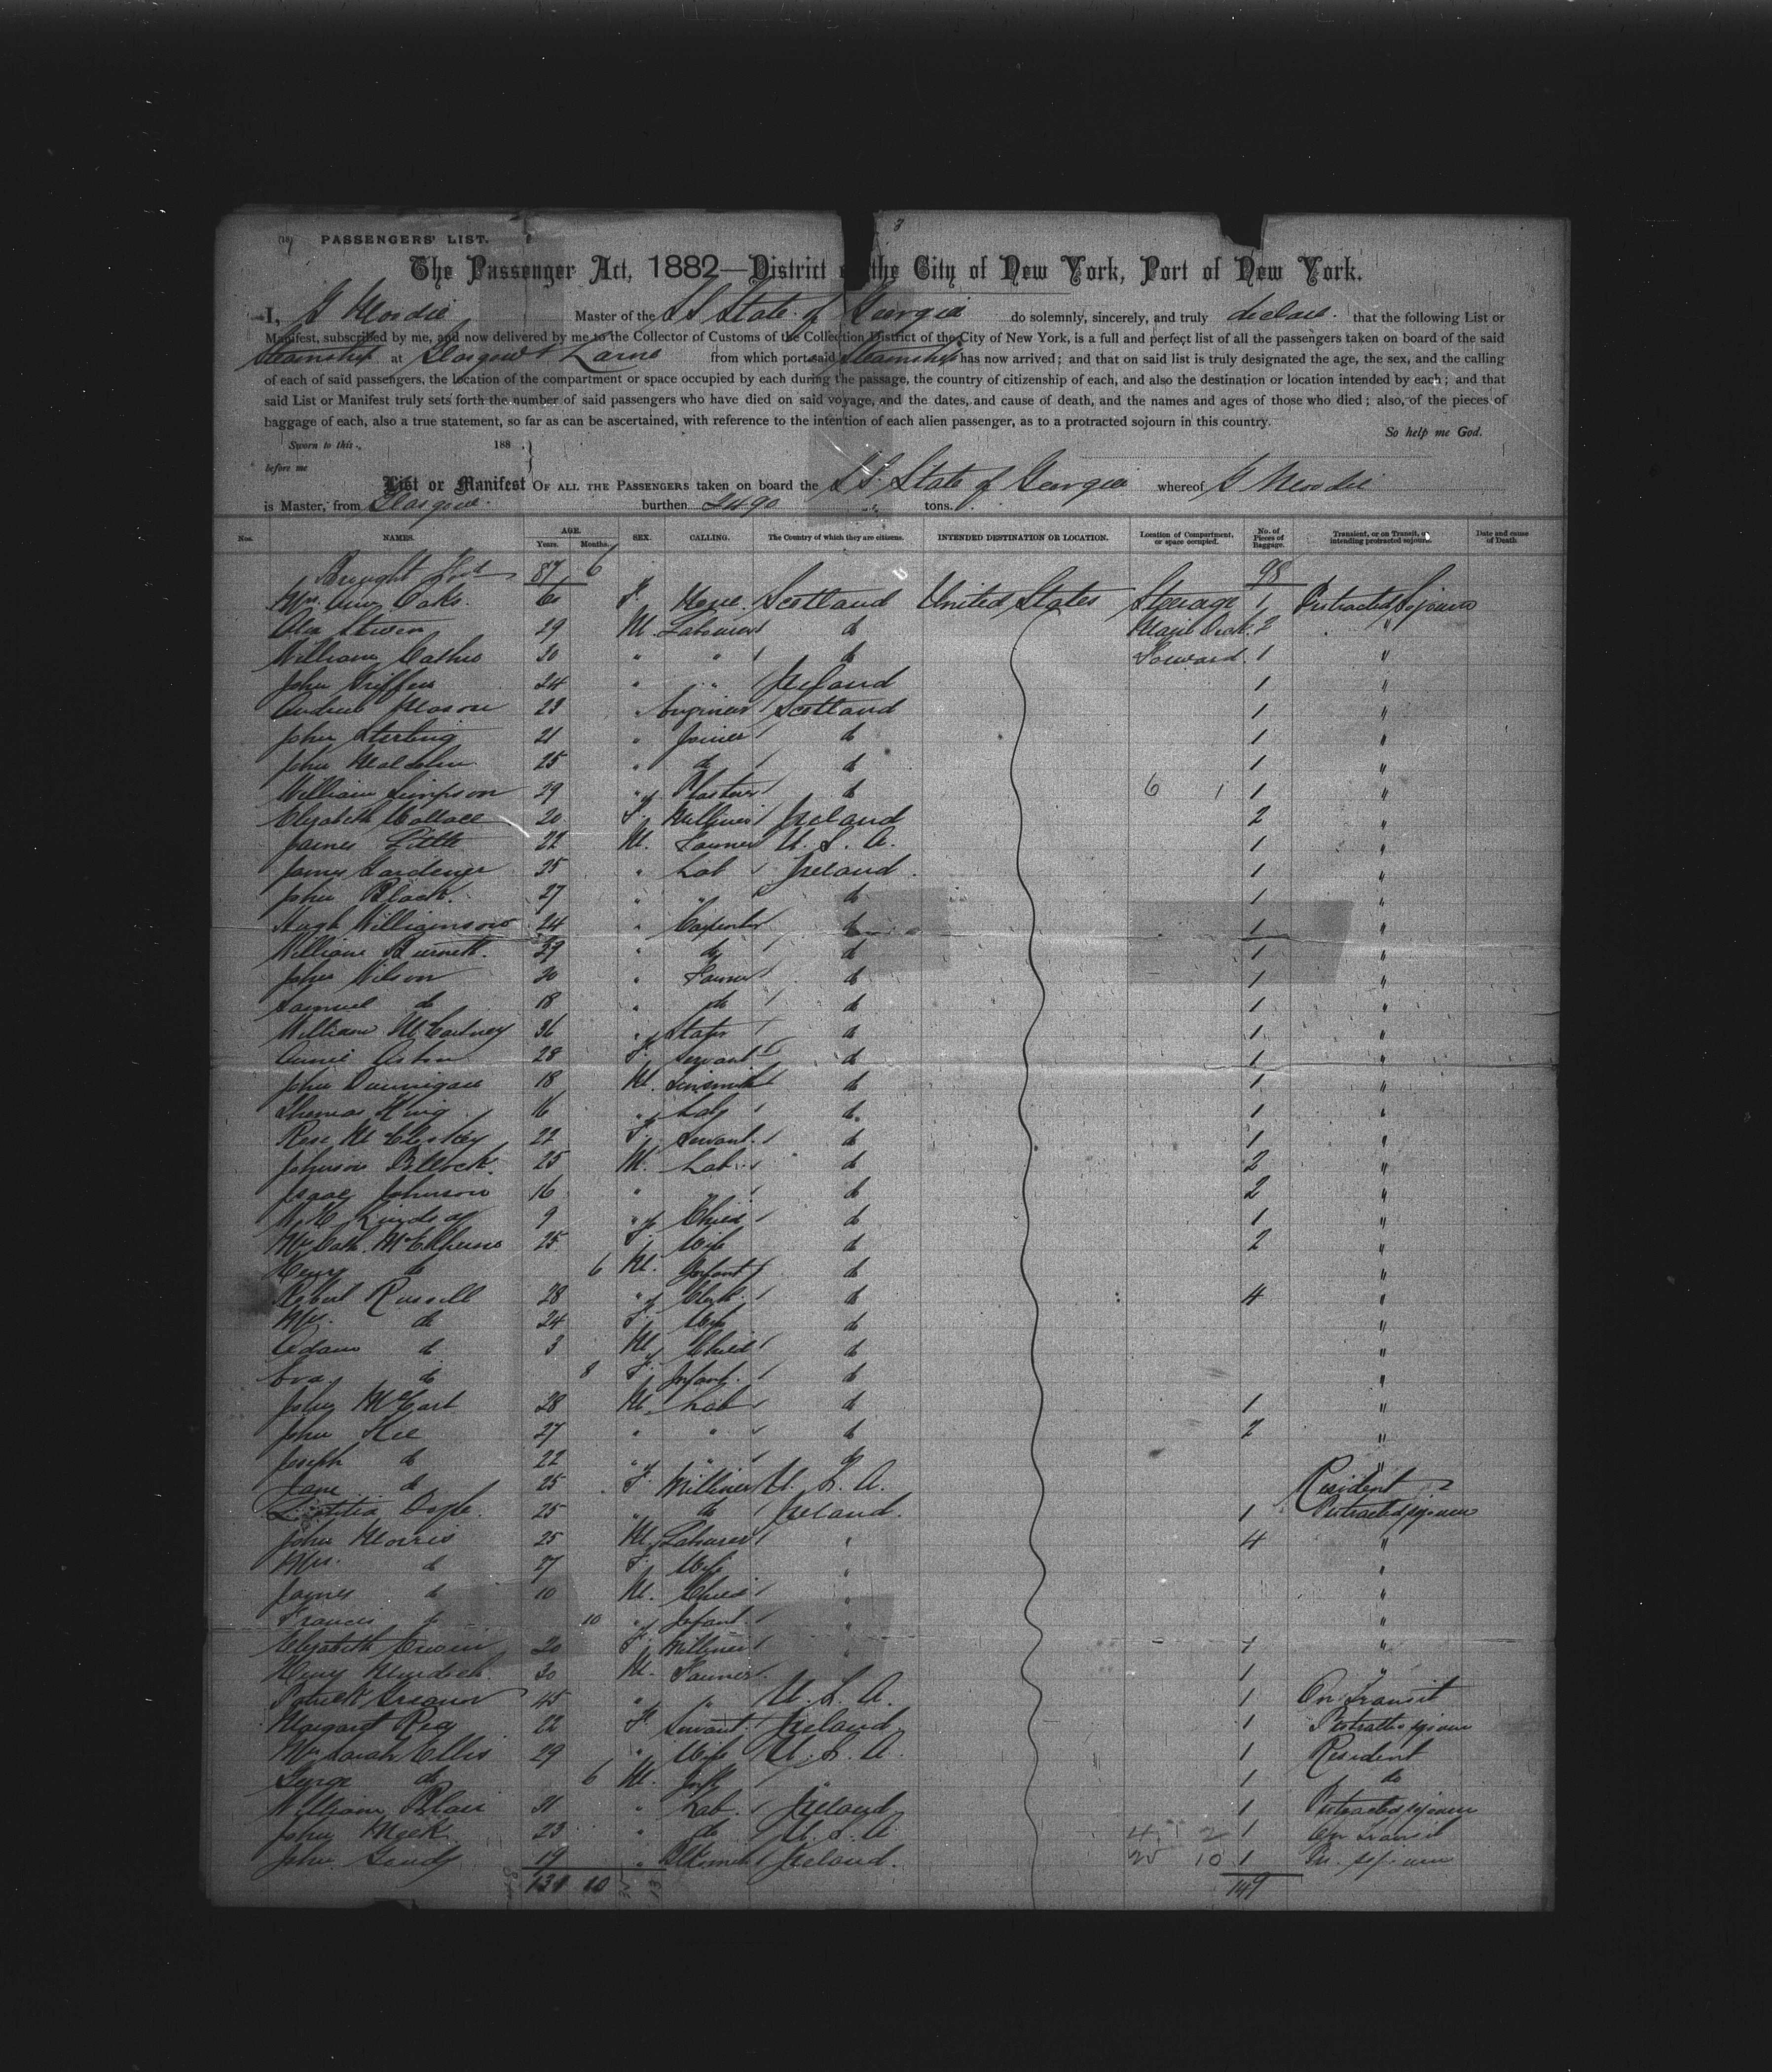 PASSENGERS' LIST.
The Passenger Act, 1882—District the City of New York, Port of New York.
I, G Moodie Master of the SS State of Georgia do solemnly, sincerely, and truly declare that the following List or
Manifest, subscribed by me, and now delivered by me to the Collector of Customs of the Collection District of the City of New York, is a full and perfect list of all the passengers taken on board of the said
Steamship at Glasgow & Larne from which port said Steamship has now arrived; and that on said list is truly designated the age, the sex, and the calling
of each of said passengers, the location of the compartment or space occupied by each during the passage, the country of citizenship of each, and also the destination or location intended by each; and that
said List or Manifest truly sets forth the number of said passengers who have died on said voyage, and the dates, and cause of death, and the names and ages of those who died; also, of the pieces of
baggage of each, also a true statement, so far as can be ascertained, with reference to the intention of each alien passenger, as to a protracted sojourn in this country.
So help me God.
Sworn to this 188
before me
List or Manifest OF ALL THE PASSENGERS taken on board the SS. State of Georgia whereof G Moodie
is Master, from Glasgow burthen 2490 tons.
Nos. NAMES. AGE. Years. Months. SEX. CALLING. The Country of which they are citizens. INTENDED DESTINATION OR LOCATION. Location of Compartment, or space occupied. No. of Pieces of Baggage. Transient, or on Transit, or intending protracted sojourn. Date and cause of Death
Brought For'd 87 6 98
Mrs. Oaks 60 F. None Scotland United States Steerage 1 Protracted Sojourn
Alex 29 M. Labourer do 2 "
William 20 " " do Forward 1 "
John 24 " " Ireland 1 "
Andrew Mason 23 " Engineer Scotland 1 "
John Sterling 21 " Joiner do 1 "
John Malcolm 25 " do do 1 "
William Simpson 29 " do 6 1 1 "
Elizabeth Wallace 20 F. Milliner Ireland 2 "
James Little 22 M. Farmer U. S. A. 1 "
James Gardener 25 " Lab Ireland 1 "
John Black 27 " " do 1 "
Hugh Williamson 24 " Carpenter do 1 "
William Burnett 29 " do do 1 "
John Wilson 20 " Farmer do 1 "
Samuel do 18 " do do 1 "
William McCartney 36 " do 1 "
Annie 28 F. Servant do 1 "
John Dunnigan 18 M. Tinsmith do 1 "
Thomas King 16 " Lab do 1 "
Rose McCloskey 22 F. Servant do 1 "
Johnson Pollock 25 M. Lab do 2 "
Isaac Johnson 16 " do 2 "
Lindsay 9 " Child do 1 "
Mrs Cath. 25 F. Wife do 2 "
Henry do 6 M. Infant do "
Robert Russell 28 " Clerk do 4 "
Mrs. do 24 F. Wife do "
Adam do 3 M Child do "
Eva do 8 F. Infant do "
John McCart 28 M Lab do 1 "
John Kee 27 " " do 2 "
Joseph do 22 " " do "
Jane do 25 F. Milliner U. S. A. Resident
Letitia 25 " do Ireland 1 Protracted sojourn
John Morris 25 M Labourer " 4 "
Mrs. do 27 F. Wife " "
James do 10 M. Child " "
Francis do 10 " Infant " "
Elizabeth 20 F. Milliner " 1 "
Henry Murdoch 30 M. Farmer 1 "
Patrick 45 " " U. S. A. 1 On Transit
Margaret Rea 22 F Servant Ireland 1 Protracted sojourn
Mrs Sarah Ellis 29 " Wife U. S. A. 1 Resident
George do 6 M. Inft " 1 do
William Blair 31 " Lab. Ireland 1 Protracted sojourn
John Meek 23 " do U. S. A. 4 2 1 On Transit
John 19 " Ireland. 25 10 1 Pr. sojourn
131 10 149